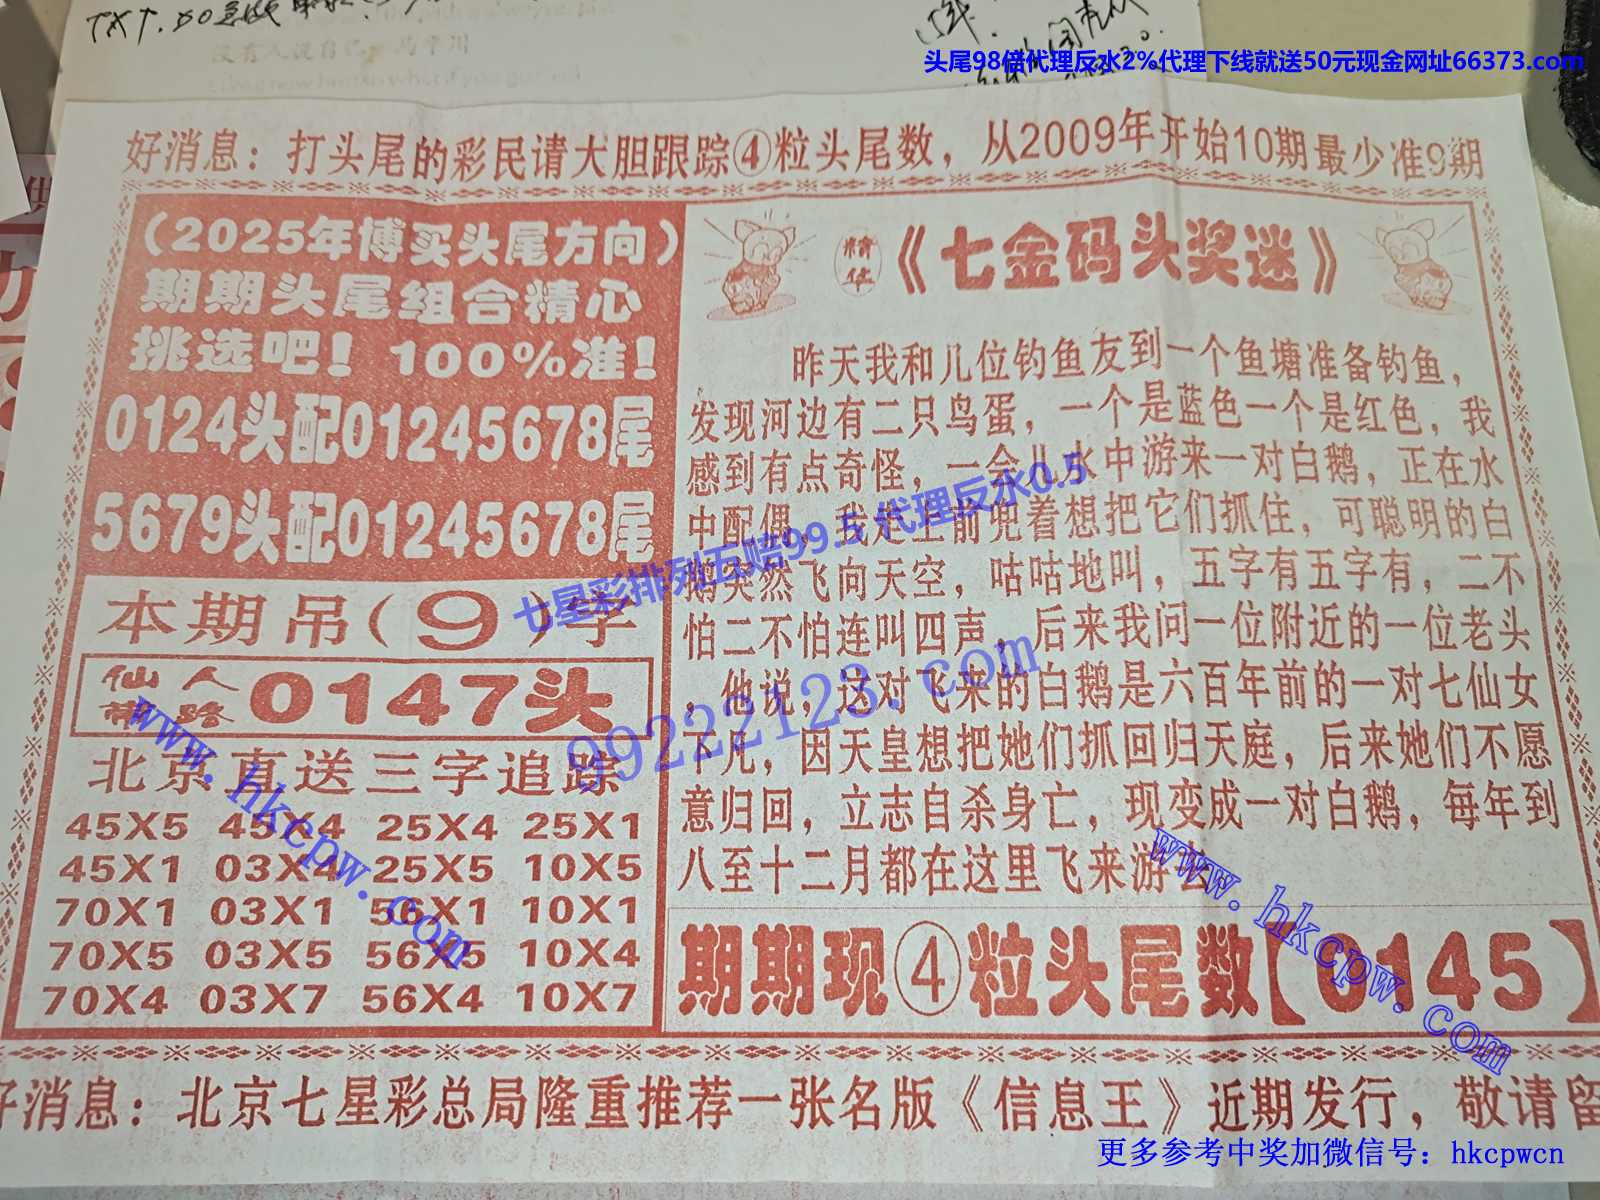 TXT.
没有人说自己
头尾98倍代理反水2%代理下线就送50元现金网址66373.com
好消息：打头尾的彩民请大胆跟踪④粒头尾数，从2009年开始10期最少准9期
（2025年博买头尾方向）
期期头尾组合精心
挑选吧！100%准！
0124头配01245678尾
5679头配01245678尾
本期吊(9)字
仙人
前路
0147头
北京直送三字追踪
45X5 45X4 25X4 25X1
45X1 03X4 25X5 10X5
70X1 03X1 56X1 10X1
70X5 03X5 56X5 10X4
70X4 03X7 56X4 10X7
精华
《七金码头奖迷》
昨天我和几位钓鱼友到一个鱼塘准备钓鱼，
发现河边有二只鸟蛋，一个是蓝色一个是红色，我
感到有点奇怪，一会儿水中游来一对白鹅，正在水
中配偶，我走上前兜着想把它们抓住，可聪明的白
鹅突然飞向天空，咕咕地叫，五字有五字有，二不
怕二不怕连叫四声，后来我问一位附近的一位老头
，他说，这对飞来的白鹅是六百年前的一对七仙女
下凡，因天皇想把她们抓回归天庭，后来她们不愿
意归回，立志自杀身亡，现变成一对白鹅，每年到
八至十二月都在这里飞来游去
期期现④粒头尾数【0145】
好消息：北京七星彩总局隆重推荐一张名版《信息王》近期发行，敬请留
七星彩排列五赔99.5 代理反水0.5
99222123.com
www.hkcpw.com
www.hkcpw.com
更多参考中奖加微信号：hkcpwcn